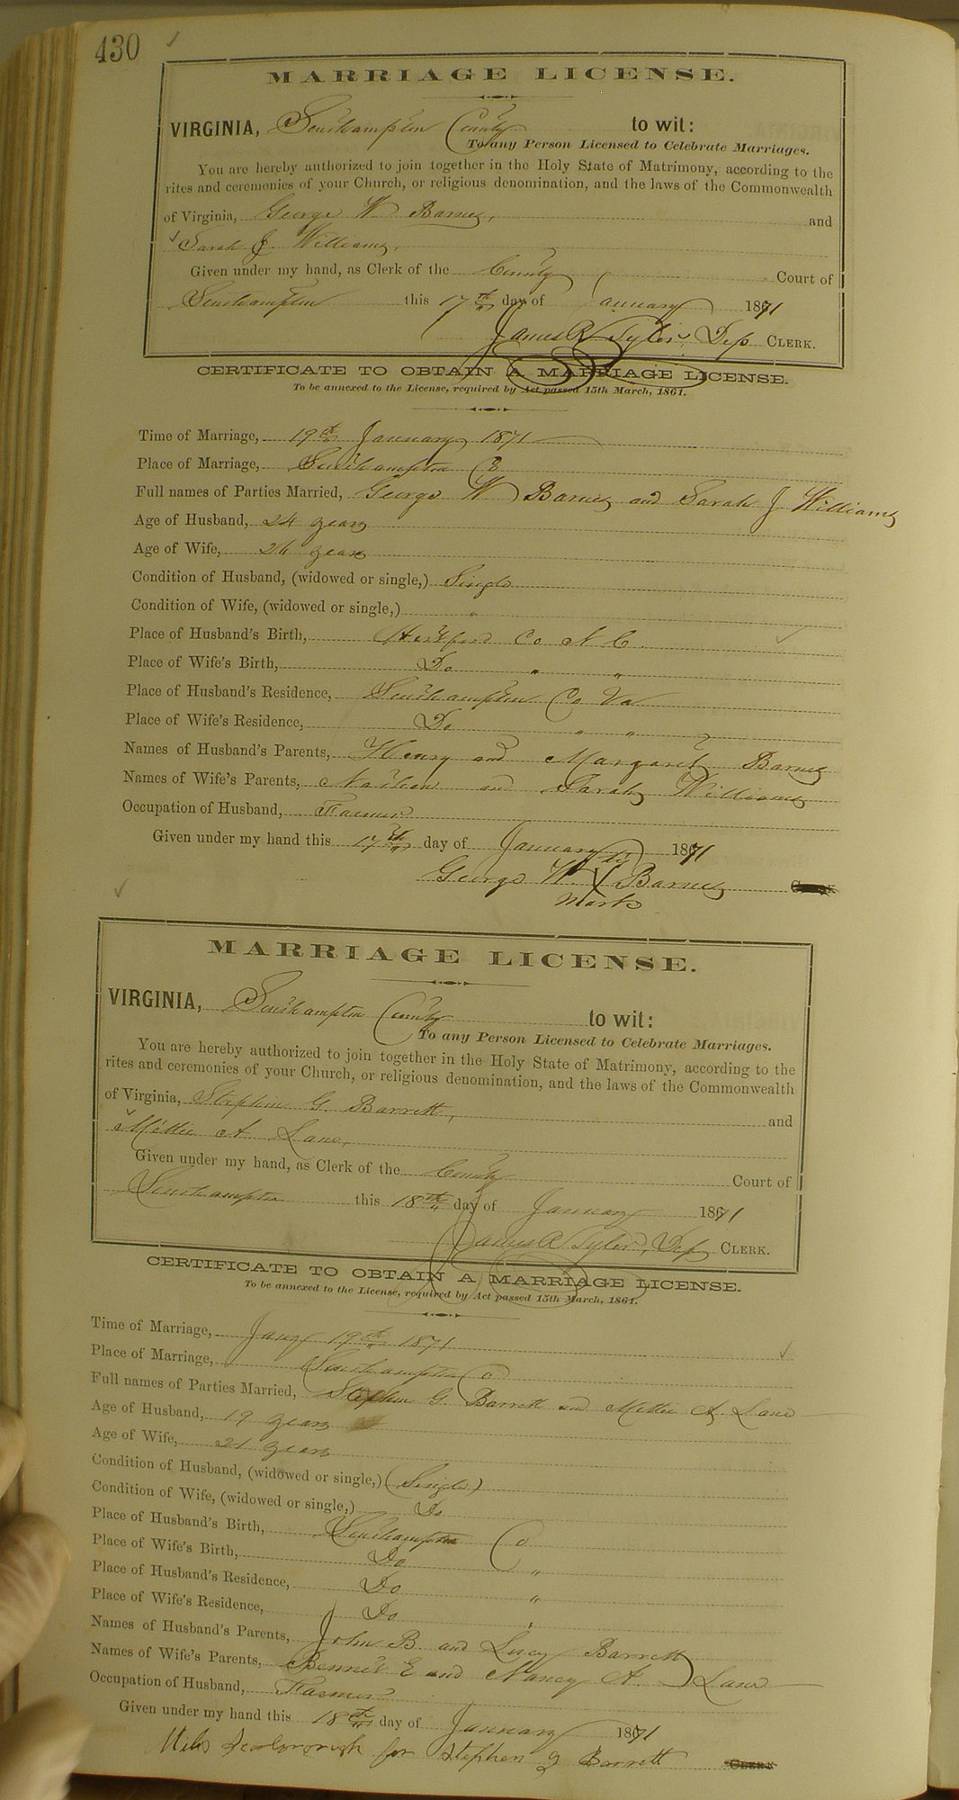 430
MARRIAGE LICENSE.
VIRGINIA, Southampton County to wit:
To any Person Licensed to Celebrate Marriages.
You are hereby authorized to join together in the Holy State of Matrimony, according to the
rites and ceremonies of your Church, or religious denomination, and the laws of the Commonwealth
of Virginia, George W Barnes, and
Sarah J. Williams,
Given under my hand, as Clerk of the County Court of
Southampton this 17th day of January 1871
James R Tyler, Dep CLERK.
CERTIFICATE TO OBTAIN A MARRIAGE LICENSE.
To be annexed to the License, required by Act passed 15th March, 1861.
Time of Marriage, 19th January 1871
Place of Marriage, Southampton Co
Full names of Parties Married, George W Barnes and Sarah J Williams
Age of Husband, 24 years
Age of Wife, 26 years
Condition of Husband, (widowed or single,) Single
Condition of Wife, (widowed or single,) "
Place of Husband's Birth, Hertford Co N C.
Place of Wife's Birth, Do " "
Place of Husband's Residence, Southampton Co Va
Place of Wife's Residence, Do " "
Names of Husband's Parents, Henry and Margaret Barnes
Names of Wife's Parents, Nathan and Sarah Williams
Occupation of Husband, Farmer
Given under my hand this 17th day of January 1871
his
George W. X Barnes
mark
MARRIAGE LICENSE.
VIRGINIA, Southampton County to wit:
To any Person Licensed to Celebrate Marriages.
You are hereby authorized to join together in the Holy State of Matrimony, according to the
rites and ceremonies of your Church, or religious denomination, and the laws of the Commonwealth
of Virginia, Stephen G. Barrett, and
Mettie A. Lane,
Given under my hand, as Clerk of the County Court of
Southampton this 18th day of January 1871
James R Tyler, Dep CLERK.
CERTIFICATE TO OBTAIN A MARRIAGE LICENSE.
To be annexed to the License, required by Act passed 15th March, 1861.
Time of Marriage, Jany 19th 1871
Place of Marriage, Southampton Co
Full names of Parties Married, Stephen G. Barrett and Mettie A. Lane
Age of Husband, 19 years
Age of Wife, 21 years
Condition of Husband, (widowed or single,) (Single)
Condition of Wife, (widowed or single,) Do
Place of Husband's Birth, Southampton Co
Place of Wife's Birth, Do "
Place of Husband's Residence, Do "
Place of Wife's Residence, Do "
Names of Husband's Parents, John B. and Lucy Barrett
Names of Wife's Parents, Bennet E and Nancy A. Lane
Occupation of Husband, Farmer
Given under my hand this 18th day of January 1871
for Stephen G Barrett CLERK